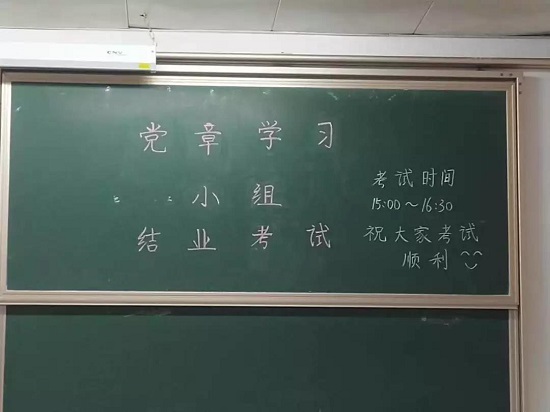 党章学习
小组
结业考试
考试时间
15:00～16:30
祝大家考试
顺利